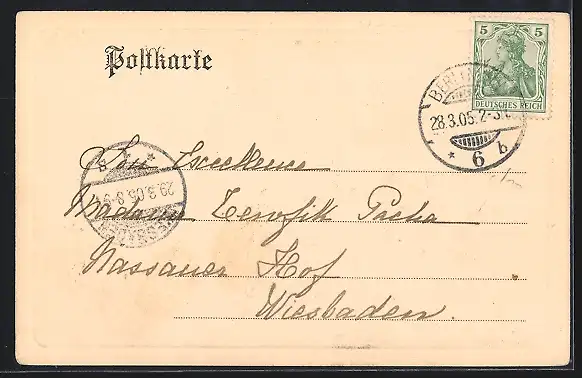 Postkarte
5 5
DEUTSCHES REICH
BERLIN
28.3.05. 2-3
* 6 b
29.3.05. 8-9
Son Excellence
Madame Tewfik Pacha
Nassauer Hof
Wiesbaden.